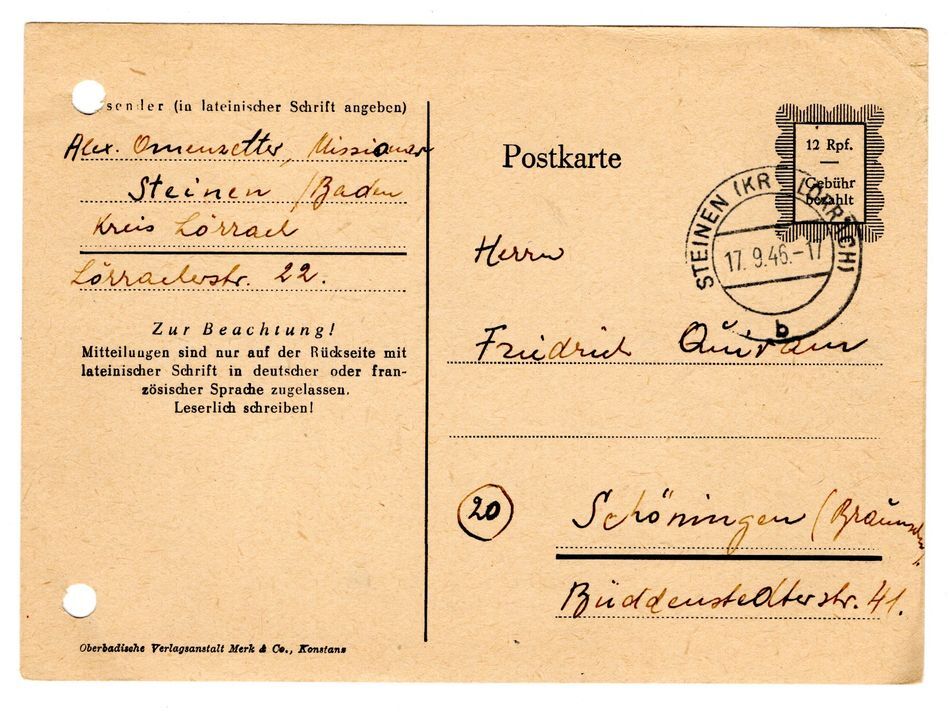 sender (in lateinischer Schrift angeben)
Alex. Omenzetter, Missionar
Steinen /Baden
Kreis Lörrach
Lörracherstr. 22.
Zur Beachtung!
Mitteilungen sind nur auf der Rückseite mit
lateinischer Schrift in deutscher oder fran-
zösischer Sprache zugelassen.
Leserlich schreiben!
Oberbadische Verlagsanstalt Merk & Co., Konstanz
Postkarte
12 Rpf.
—
Gebühr
bezahlt
STEINEN (KR LÖRRACH)
17.9.46.-17
b
Herrn
Friedrich
20
Schöningen (Braunschw.
Büddenstedterstr. 41.